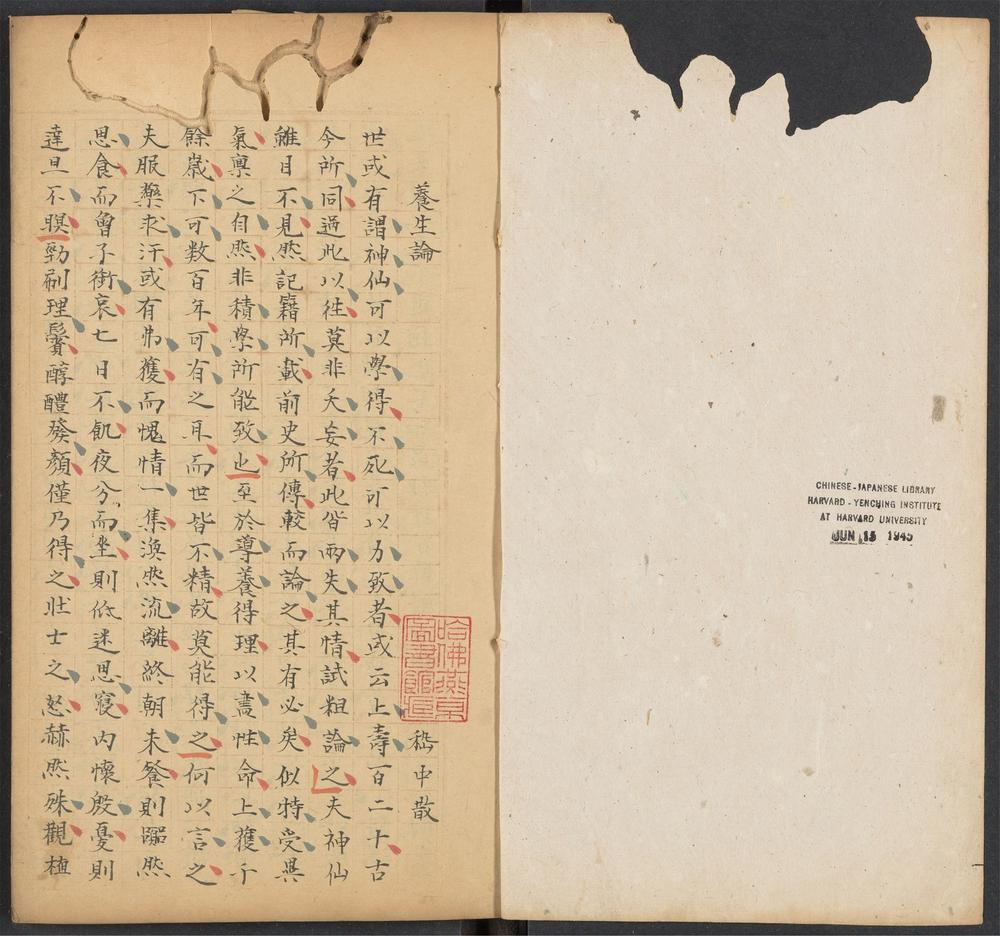 CHINESE-JAPANESE LIBRARY
HARVARD-YENCHING INSTITUTE
AT HARVARD UNIVERSITY
JUN 15 1945
養生論 嵇中散
哈佛燕京圖書館
世或有謂神仙可以學得不死可以力致者或云上壽百二十古
今所同過此以往莫非夭妄者此皆兩失其情試粗論之夫神仙
雖目不見然記籍所載前史所傳較而論之其有必矣似特受異
氣稟之自然非積學所能致也至於導養得理以盡性命上獲千
餘歲下可數百年可有之耳而世皆不精故莫能得之何以言之
夫服藥求汗或有弗獲而愧情一集渙然流離終朝未餐則囂然
思食而曾子銜哀七日不飢夜分而坐則低迷思寢內懷殷憂則
達旦不瞑勁刷理鬢醇醴發顏僅乃得之壯士之怒赫然殊觀植